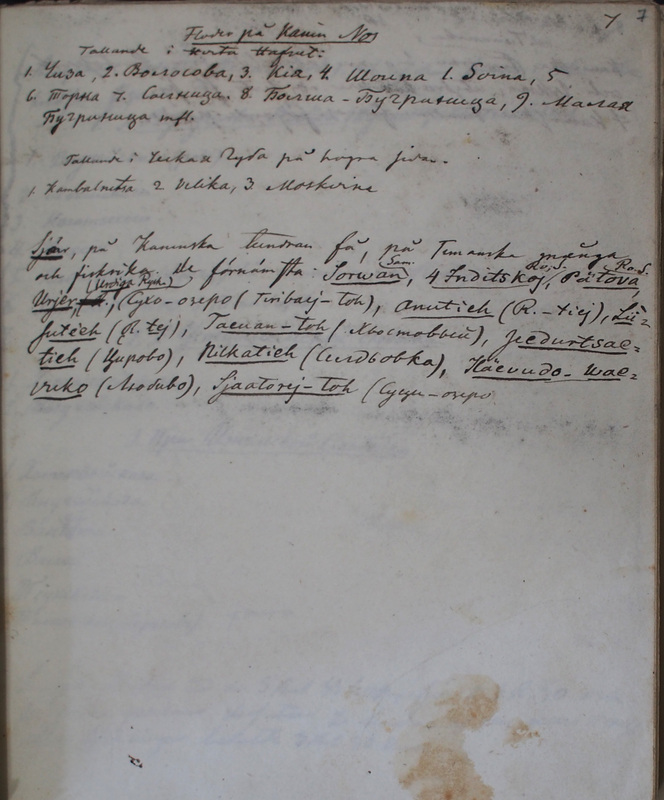 7 7
Floder på Kanin Nos
fallande i hvita Hafvet:
1. Чиза, 2. Волосова, 3. Kia, 4. Шоина 1. Soina, 5
6. Торна 7. Сальница. 8. Больша-Бугриница, 9. Малая
Бугриница mfl.
fallande i Ческая Губа på högra sidan.
1. Kambalnitsa 2 Velika, 3 Moskvina
Sjöar, på Kaninska tundran få, på Timanska många
och fiskrika. De förnämsta: Sorwan, 4 Inditskoj, Pätova,
Sam. R. o. S. R. o. S.
Urjer, (Urdiga Rysk.) (Сухо-озеро (Tiribaej-toh), Anutieh (R. - tiej), Lii-
suteeh (R. tej), Taeuan-toh (Хвостоввый), Jeedurtsae-
tieh (Цирово), Pilkatieh (Сельдьовка), Häevudo-wae-
vuko (Людиво), Sjaatorej-toh (Сущи-озеро